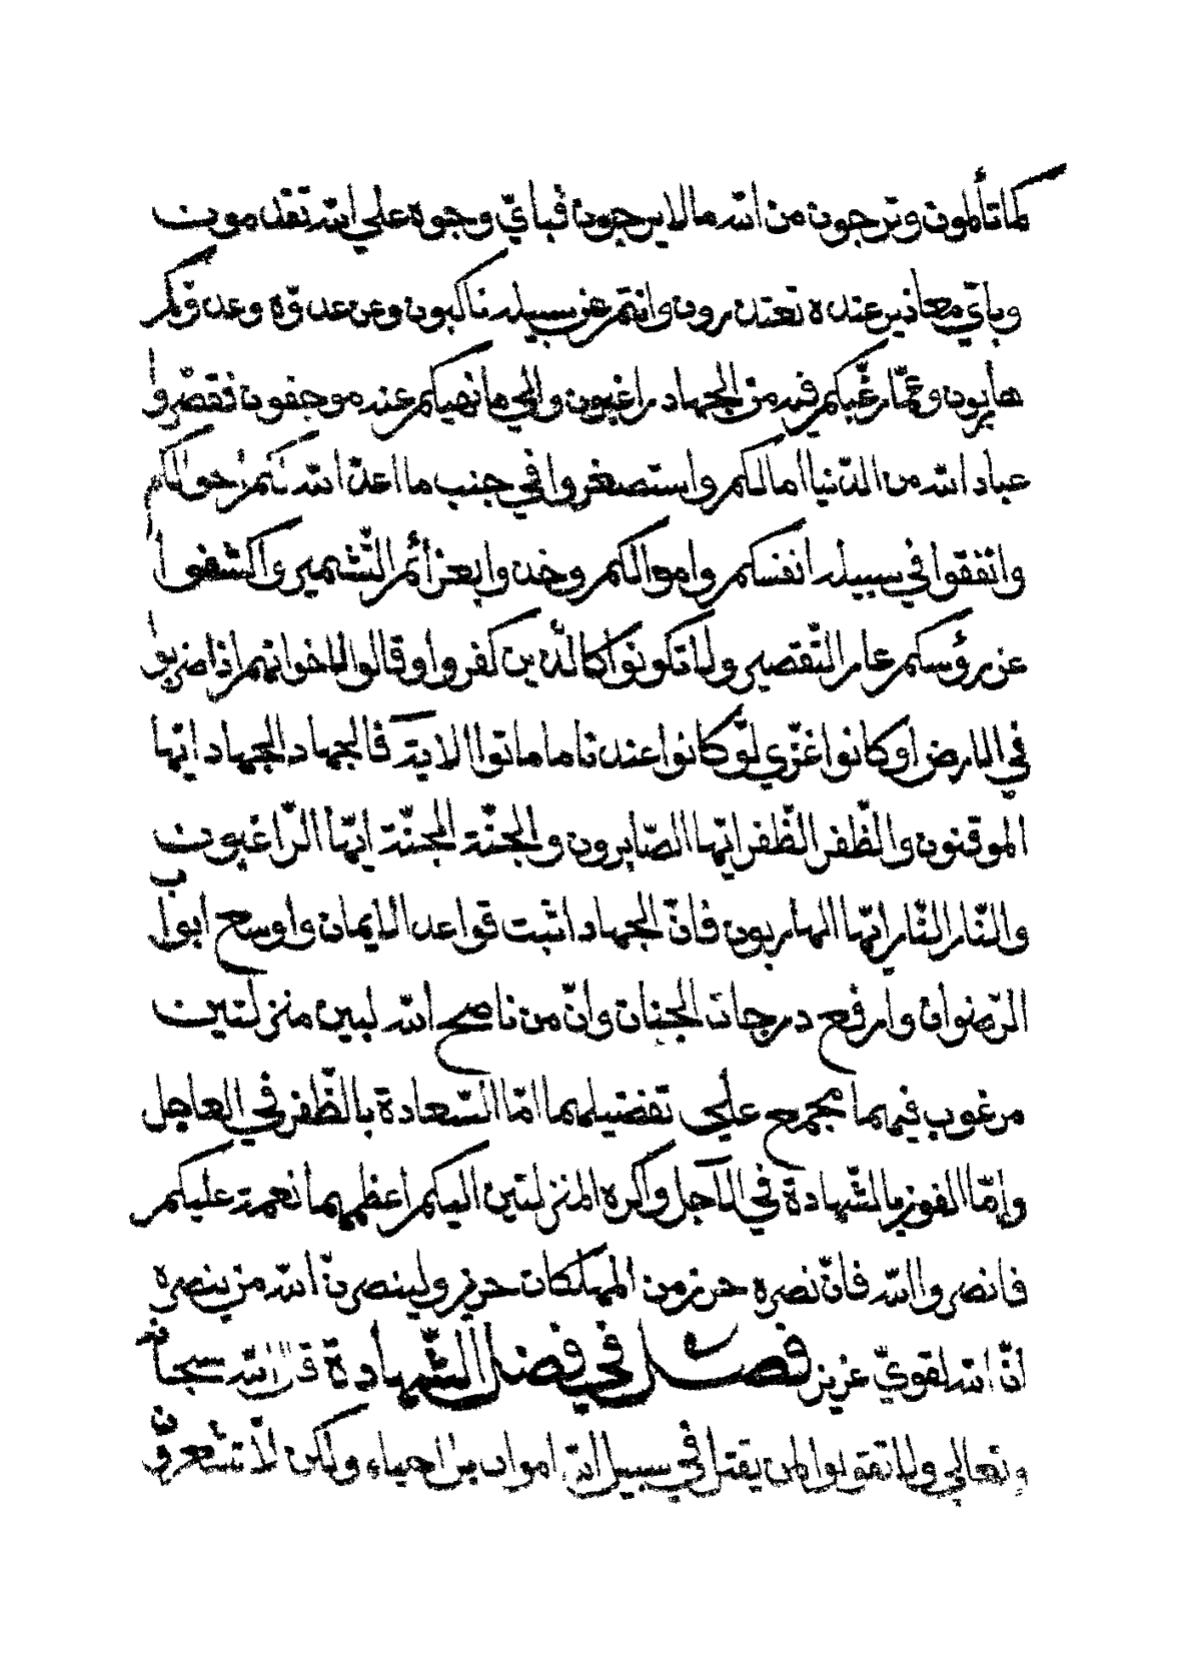 كما تألمون وترجون من الله ما لا يرجون فبأيّ وجوه علي الله تقدمون
وبأيّ معاذير عنده تعتذرون وانتم عن سبيله ناكبون وعن عدوّه وعدوّكم
هاربون وعمّا رغّبكم فيه من الجهاد راغبون والي ما نهيكم عنه موجفون فقصّروا
عباد الله من الدّنيا امالكم واستصغروا في جنب ما اعدّ الله لكم احوالكم
وانفقوا في سبيله انفسكم واموالكم وخذوا بعزائم التّشمير واكشفوا
عن رؤسكم عار التّقصير ولا تكونوا كالّذين كفروا وقالوا لاخوانهم اذا ضربوا
في الارض او كانوا غزّي لو كانوا عندنا ما ماتوا الاية فالجهاد الجهاد ايّها
الموقنون والظّفر الظّفر ايّها الصّابرون والجنّة الجنّة ايّها الرّاغبون
والنّار النّار ايّها الهاربون فانّ الجهاد اثبت قواعد الايمان واوسع ابواب
الرّضوان وارفع درجات الجنان وانّ من ناصح الله لبين منزلتين
مرغوب فيهما مجمع علي تفضيلهما امّا السّعادة بالظّفر في العاجل
وإمّا الفوز بالشّهادة في الآجل واكره المنزلتين اليكم اعظمهما نعمة عليكم
فانصروا الله فانّ نصره حرز من المهلكات حريز ولينصرنّ الله من ينصره
انّ الله لقويّ عزيز فصل في فضل الشّهادة قال الله سبحانه
وتعالي ولا تقولوا لمن يقتل في سبيل الله اموات بل احياء ولكن لا تشعرون